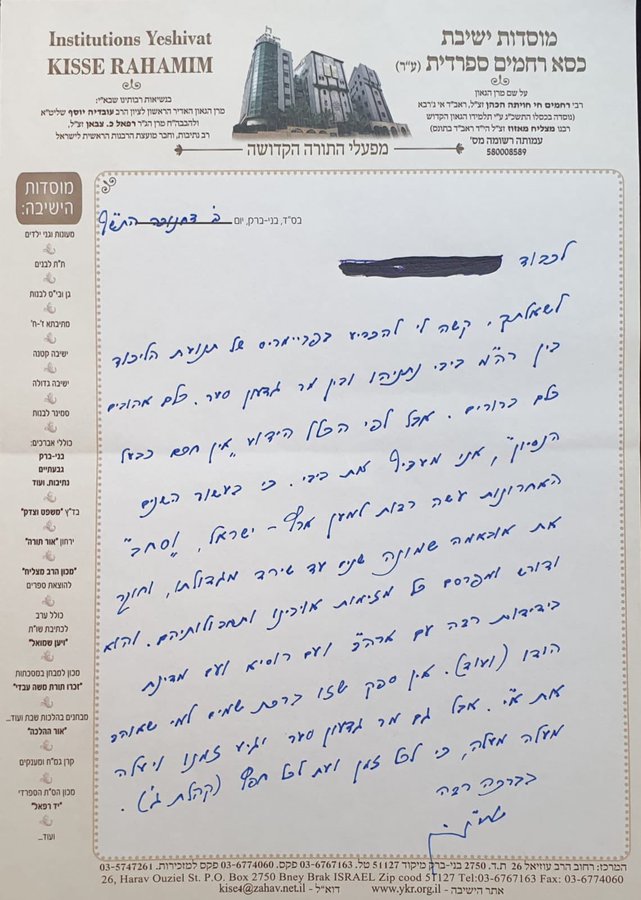 Institutions Yeshivat
KISSE RAHAMIM
מוסדות ישיבת
כסא רחמים ספרדית (ע"ר)
על שם מרן הגאון
רבי רחמים חי חויתה הכהן זצ"ל, ראב"ד אי ג'רבא
(נוסדה בכסלו התשכ"ג ע"י תלמידו הגאון הקדוש
רבנו מצליח מאזוז זצ"ל הי"ד ראב"ד בתונס)
עמותה רשומה מס'
580008589
בנשיאות רבותינו שבא"י:
מרן הגאון האדיר הראשון לציון הרב עובדיה יוסף שליט"א
ולהבבח"ח מרן הג"ר רפאל כ. צבאן זצ"ל,
רב נתיבות, וחבר מועצת הרבנות הראשית לישראל
מפעלי התורה הקדושה
מוסדות
הישיבה:
מעונות וגני ילדים
ת"ת לבנים
גן ובי"ס לבנות
מתיבתא ז'-ח'
ישיבה קטנה
ישיבה גדולה
סמינר לבנות
כוללי אברכים:
בני-ברק
גבעתיים
נתיבות, ועוד
בד"ץ "משפט וצדק"
ירחון "אור תורה"
"מכון הרב מצליח"
להוצאת ספרים
כולל ערב
לכתיבת שו"ת
"ויען שמואל"
מכון למבחן במסכתות
"זכרו תורת משה עבדי"
מבחנים בהלכות שבת ועוד...
"אור ההלכה"
קרן גמ"ח ומענקים
מכון הס"ת הספרדי
"יד רפאל"
ועוד...
בס"ד, בני-ברק, יום ב' דחנוכה התש"ף
לכבוד
לשאלתך, קשה לי להכריע בפריימריס של תנועת הליכוד
בין רה"מ ביבי נתניהו ובין מר גדעון סער. כלם אהובים
כלם ברורים. אבל לפי הכלל הידוע "אין חכם כבעל
הנסיון", אני מעדיף את ביבי. כי בעשור השנים
האחרונות עשה רבות למען ארץ-ישראל, "וסחב"
את אובאמה שמונה שנים עד שירד מגדולתו, וחוקר
ודורש ומפרסם כל מזימות אויבינו ותחבולותיהם. והוא
בידידות רבה עם ארה"ב ועם רוסיא ועם מדינת
הודו (ועוד). אין ספק שזו ברכת שמים למי שאוהב
את א"י. אבל גם מר גדעון סער יגיע זמנו ויעלה
מעלה מעלה, כי לכל זמן ועת לכל חפץ (קהלת ג').
בברכה רבה
המרכז: רחוב הרב עוזיאל 26 ת.ד. 2750 בני-ברק מיקוד 51127 טל. 03-6767163 פקס. 03-6774060 פקס למזכירות. 03-5747261
26, Harav Ouziel St. P.O. Box 2750 Bney Brak ISRAEL Zip cood 51127 Tel:03-6767163 Fax: 03-6774060
אתר הישיבה - www.ykr.org.il דוא"ל - kise4@zahav.net.il